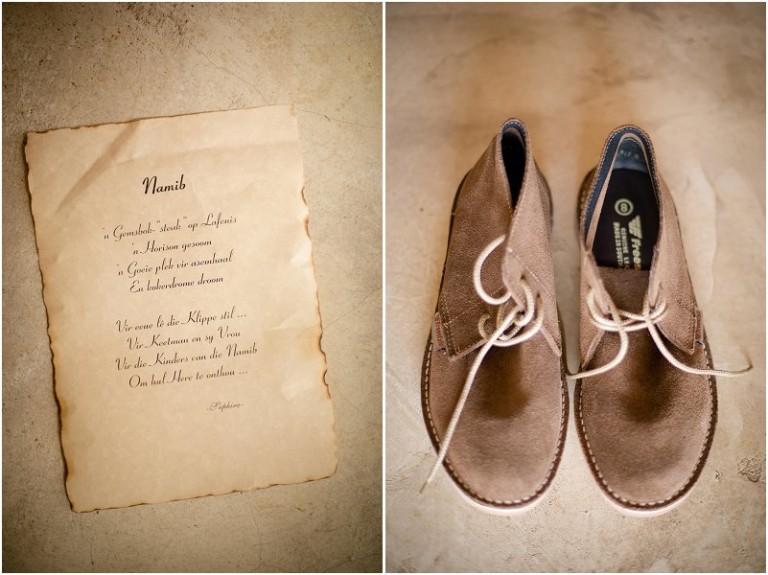 Namib
'n Gemsbok-"steak" op Lafenis
'n Horison gesoom
'n Goeie plek vir asemhaal
En kokerdrome droom
Vir eeue lê die Klippe stil ...
Vir Keetman en sy Vrou
Vir die Kinders van die Namib
Om hul Here te onthou ...
8
Free
GENUINE
MADE IN